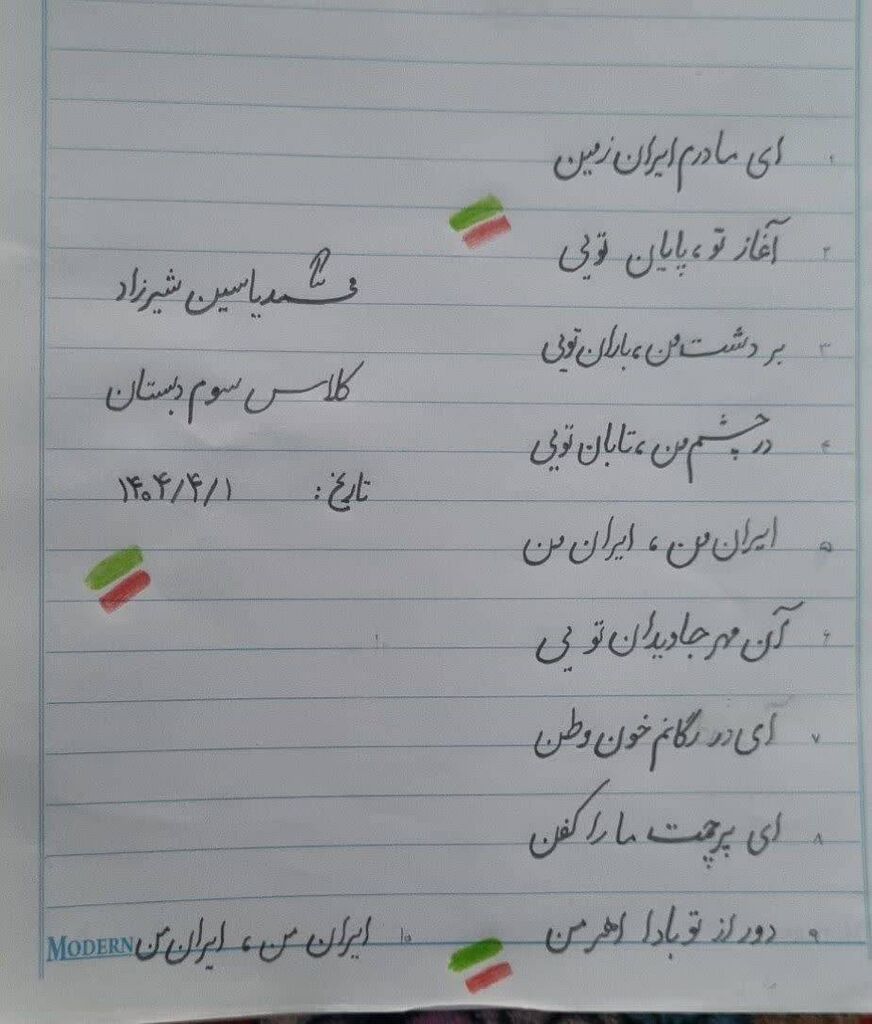 ۱ ای مادرم ایران زمین
۲ آغاز تو، پایان تویی
۳ بر دشت من، باران تویی
۴ در چشم من، تابان تویی
۵ ایران من، ایران من
۶ آن مهر جاویدان تویی
۷ ای در رگانم خون وطن
۸ ای پرچمت ما را کفن
۹ دور از تو بادا اهرمن
۱۰ ایران من، ایران من
محمدیاسین شیرزاد
کلاس سوم دبستان
تاریخ: ۱۴۰۴/۴/۱
MODERN